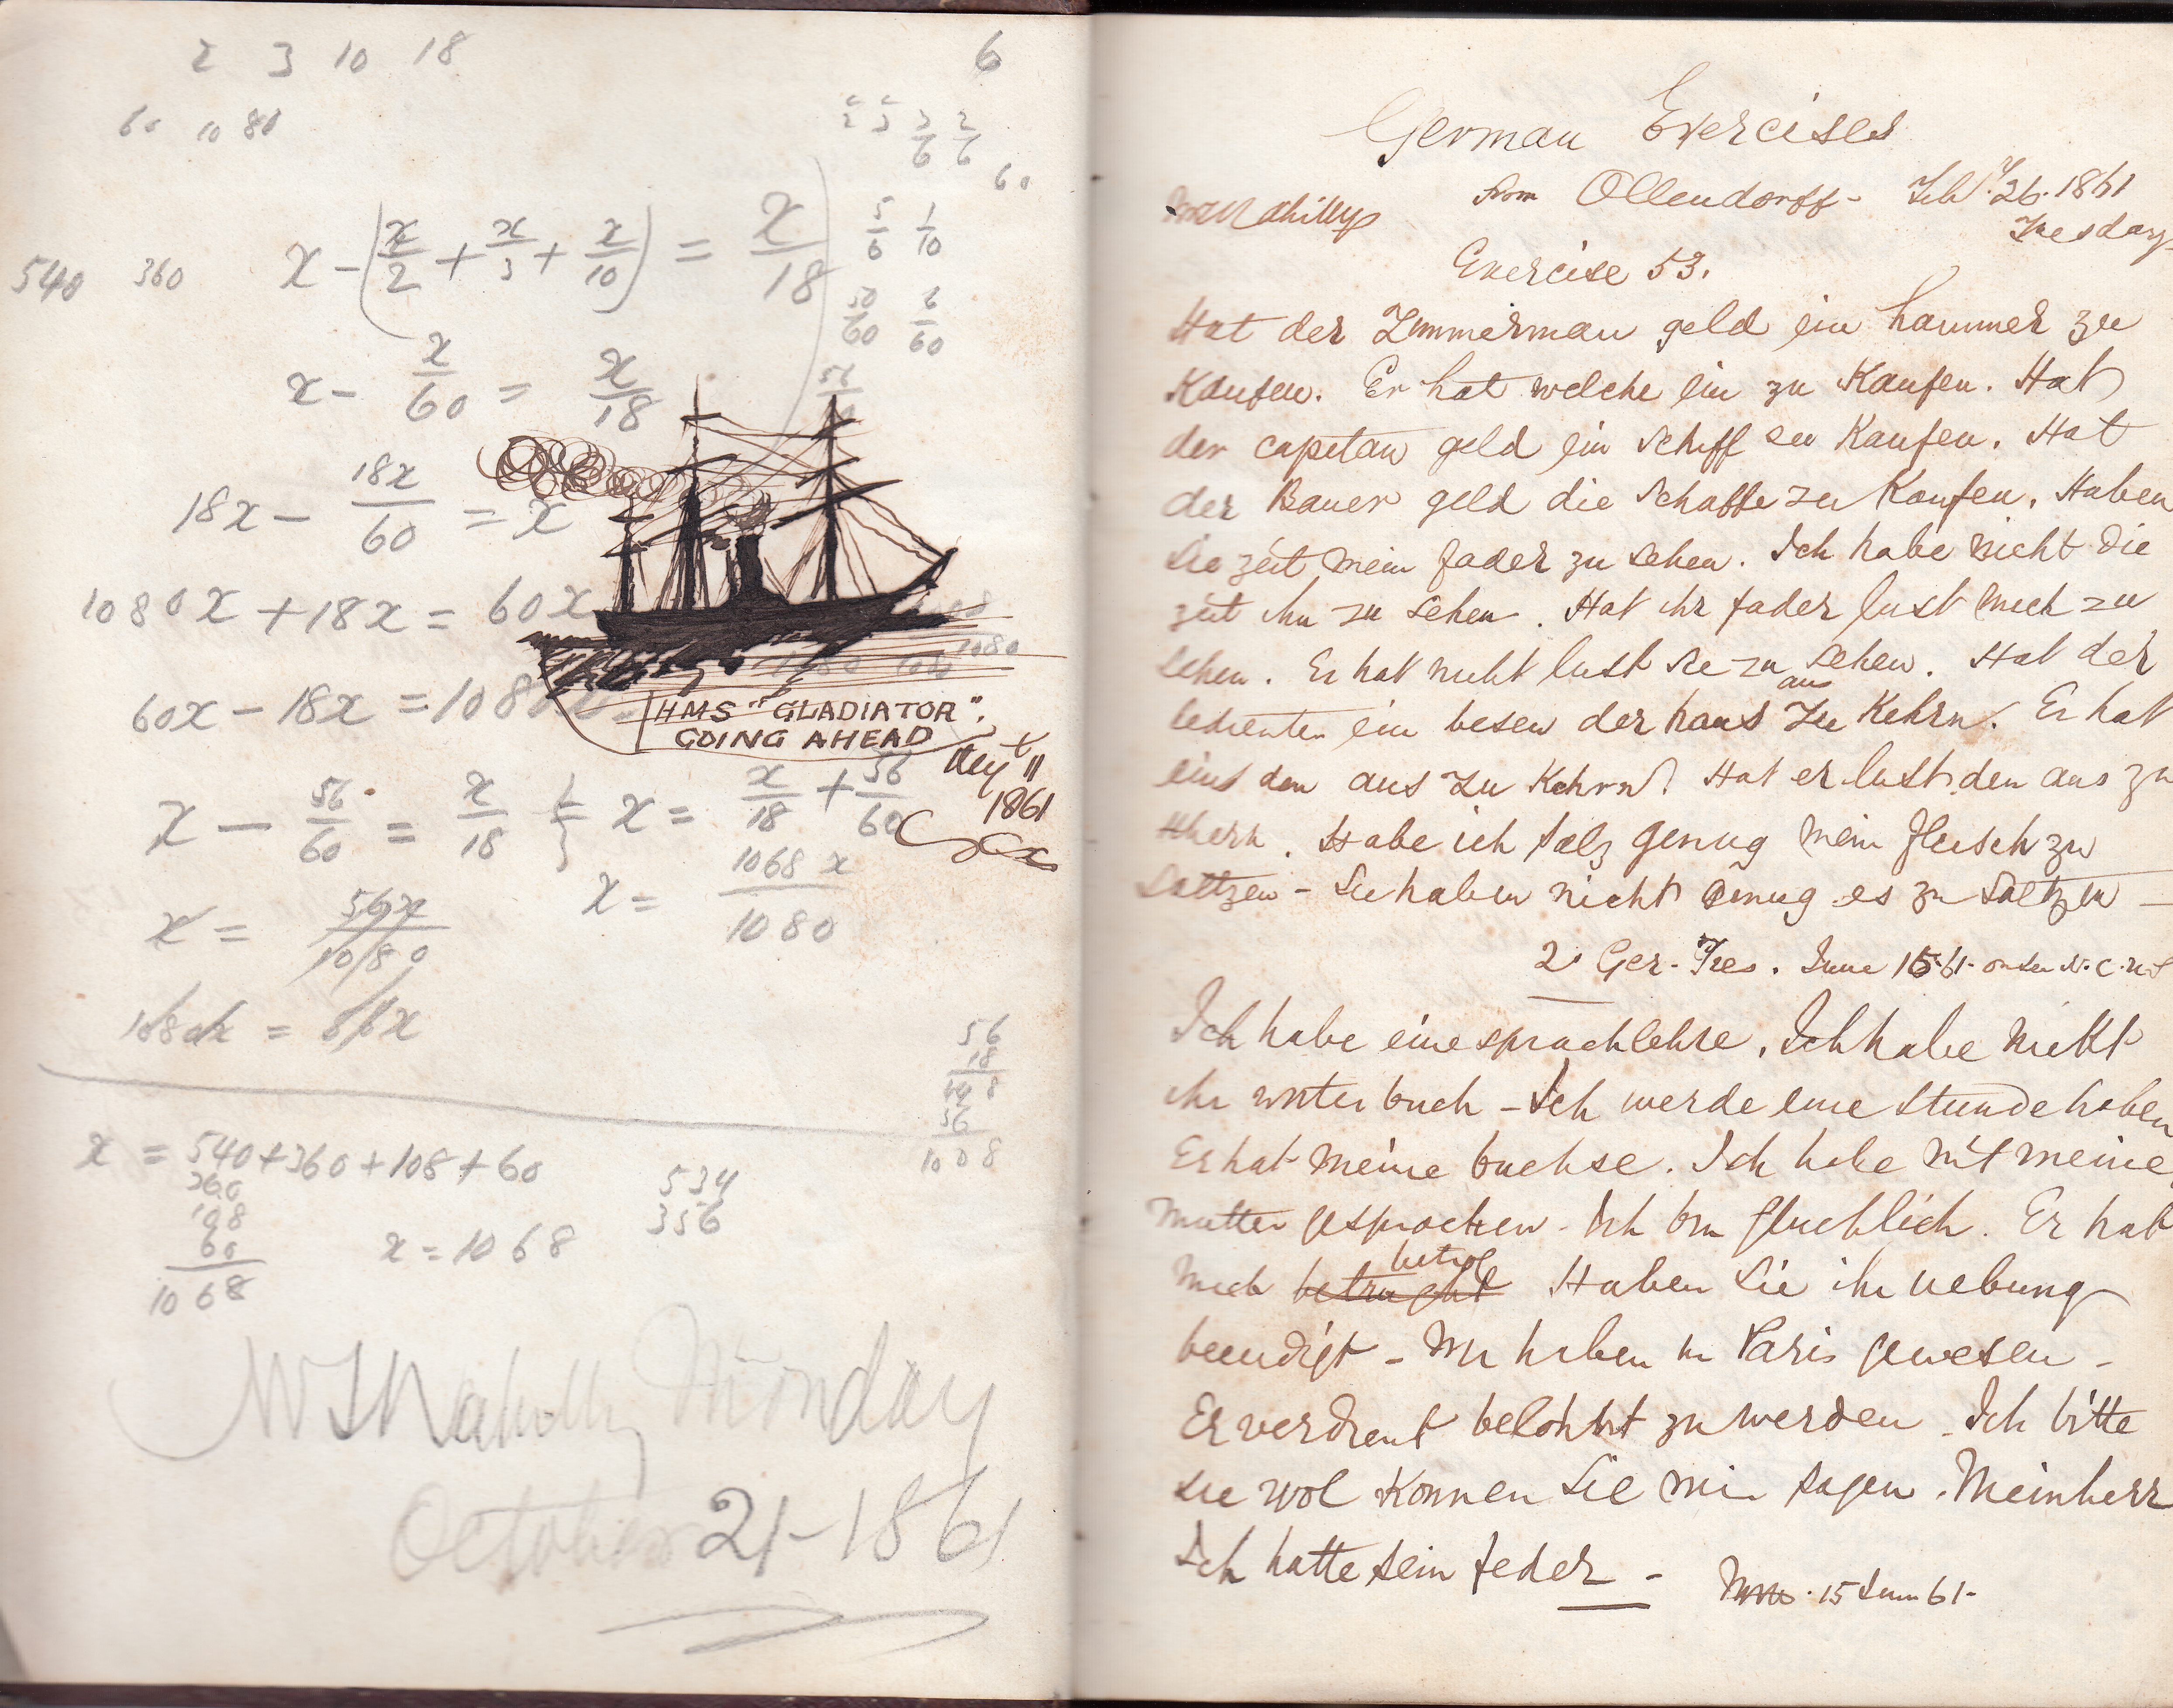 2 3 10 18 6
60 10 80
2/2 2/3 3/6 2/6
60
x - (x/2 + x/3 + x/10) = x/18
5/6 1/10
540 360
50/60 6/60
x - x/60 = x/18
56
18x - 18x/60 = x
1080x + 18x = 60x
1080
60x - 18x = 108
HMS "GLADIATOR".
GOING AHEAD
11
1861
x - 56/60 = x/18 x = x/18 + 56/60
x = 1068 x/1080
x = 56x/1080
1080x = 56x
56
18
448
56
1008
x = 540 + 360 + 108 + 60
360
108
60
1068
x = 1068
534
356
Monday
October 21 - 1861
German Exercises
from Ollendorff - Feby. 26. 1861
Tuesday
Exercise 53.
Hat der Zimmerman geld ein hammer zu
Kaufen. Er hat welche ein zu Kaufen. Hat
der capitan geld ein Schiff zu Kaufen. Hat
der Bauer geld die Schaffe zu Kaufen. Haben
Sie zeit mein fader zu sehen. Ich habe nicht die
zeit ihn zu sehen. Hat ihr fader lust mich zu
sehen. Er hat nicht lust sie zu sehen. Hat der
bedienter ein besen der haus aus zu Kehrn. Er hat
eins den aus zu Kehrn. Hat er lust den aus zu
Habe ich salz genug mein fleisch zu
Saltzen - Sie haben nicht genug es zu Saltzen -
2. Ger. June 15. 61.
Ich habe eine sprachlehre. Ich habe nicht
ihr worterbuch - Ich werde eine stunde haben
Er hat meine buchse. Ich habe mit meine
mutter gesprochen - Ich bin glucklich. Er hat
mich betrog Haben Sie ihr uebung
beendigt - Wir haben in Paris gewesen -
Er verdient belohnt zu werden - Ich bitte
sie wol konnen Sie mir sagen. Meinherr
Ich hatte sein feder -
15 June 61 -